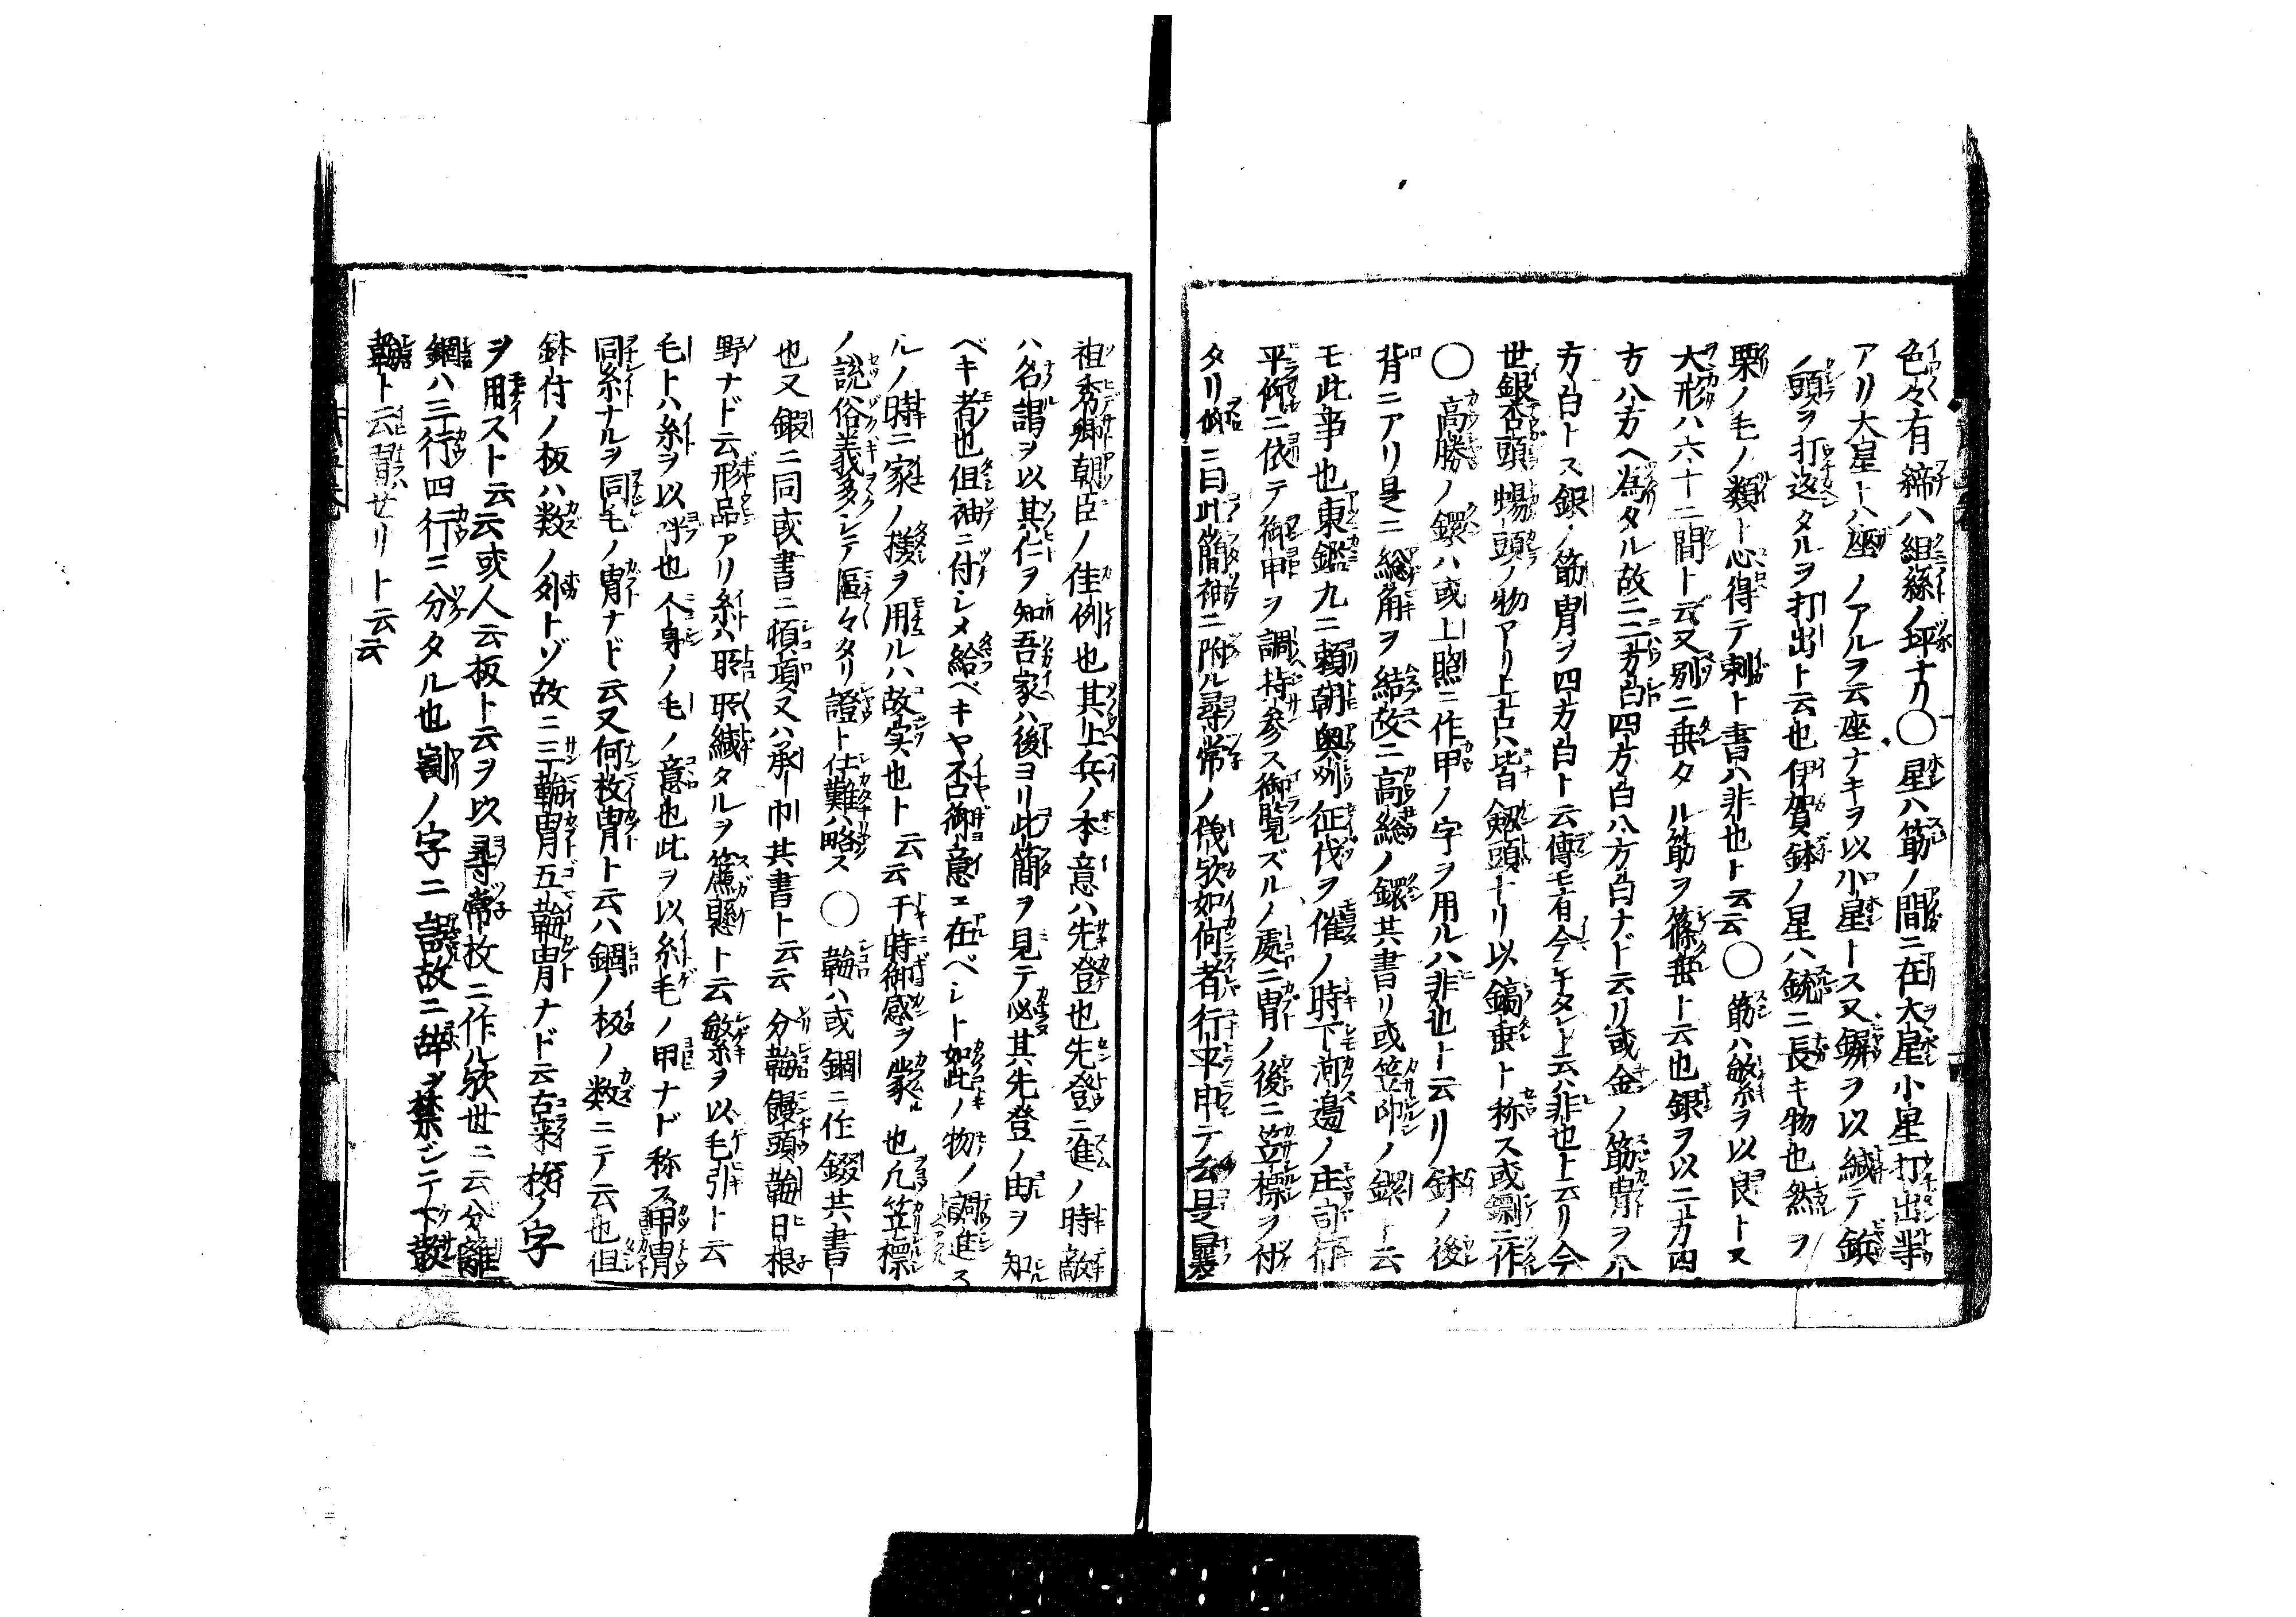 色々有締ハ組緒ノ坪ナリ〇星ハ筋ノ間ニ在大星小星打出等
アリ大星トハ座ノアルヲ云座ナキヲ以小星トス又鋲ヲ以縅テ鋲
ノ頭ヲ打返タルヲ打出ト云也伊賀鉢ノ星ハ銃ニ長キ物也然ヲ
栗ノ毛ノ類ト心得テ刺ト書ハ非也ト云云〇筋ハ敏系ヲ以良トス
大形ハ六十二間ト云又別ニ垂タル筋ヲ篠垂ト云也銀ヲ以二方四
方八方ヘ為タル故ニ二方白四方白八方白ナド云リ或金ノ筋冑ヲ八
方白トス銀ノ筋冑ヲ四方白ト云傳モ有今年タレト云ハ非也ト云リ今
世銀杏頭 頭ノ物アリ上古ハ皆剱頭ナリ以鎬垂ト称ス或 ニ作
〇高勝ノ鐶ハ或上照ニ作甲ノ字ヲ用ルハ非也ト云リ鉢ノ後
背ニアリ是ニ総角ヲ結故ニ高総ノ鐶共書リ或笠印ノ鐶ト云
モ此事也東鑑九ニ頼朝奥州征伐ヲ催ノ時下河邊ノ庄司行
平仰ニ依テ御甲ヲ調持参ス御覧ズルノ處ニ冑ノ後ニ笠標ヲ付
タリ仰ニ曰此簡袖ニ附ル尋常ノ儀欤如何者行平申テ云是曩
祖秀郷朝臣ノ佳例也其上兵ノ本意ハ先登也先登ニ進ノ時敵
ハ名謁ヲ以其仁ヲ知吾家ハ後ヨリ此簡ヲ見テ必其先登ノ由ヲ知
ベキ者也但袖ニ付シメ給ベキヤ否御意ニ在ベシト如此ノ物ノ調進ス
ルノ時ニ家ノ様ヲ用ルハ故実也ト云云于時御感ヲ蒙ル也凡笠標
ノ説俗義多シテ區々タリ證ト仕難ハ略ス〇 ハ或錣ニ作錣共書
也又錏ニ同或書ニ頓項又ハ承巾共書ト云云分 饅頭 日根
野ナド云形品アリ糸ハ取取縅タルヲ簾懸ト云敏系ヲ以毛引ト云
毛トハ糸ヲ以呼也人身ノ毛ノ意也此ヲ以糸毛ノ甲ナド称ス甲冑
同糸ナルヲ同毛ノ冑ナド云又何枚冑ト云ハ錣ノ板ノ数ニテ云也但
鉢付ノ板ハ数ノ外トゾ故ニ三 冑五 冑ナド云古来枚ノ字
ヲ用ストト云云或人云板ト云ヲ以尋常枚ニ作ル欤世ニ云分離
錣ハ三行四行ニ分タル也割ノ字ニ 故ニ辞ヲ禁シニテ下散
 ト云習セリト云云